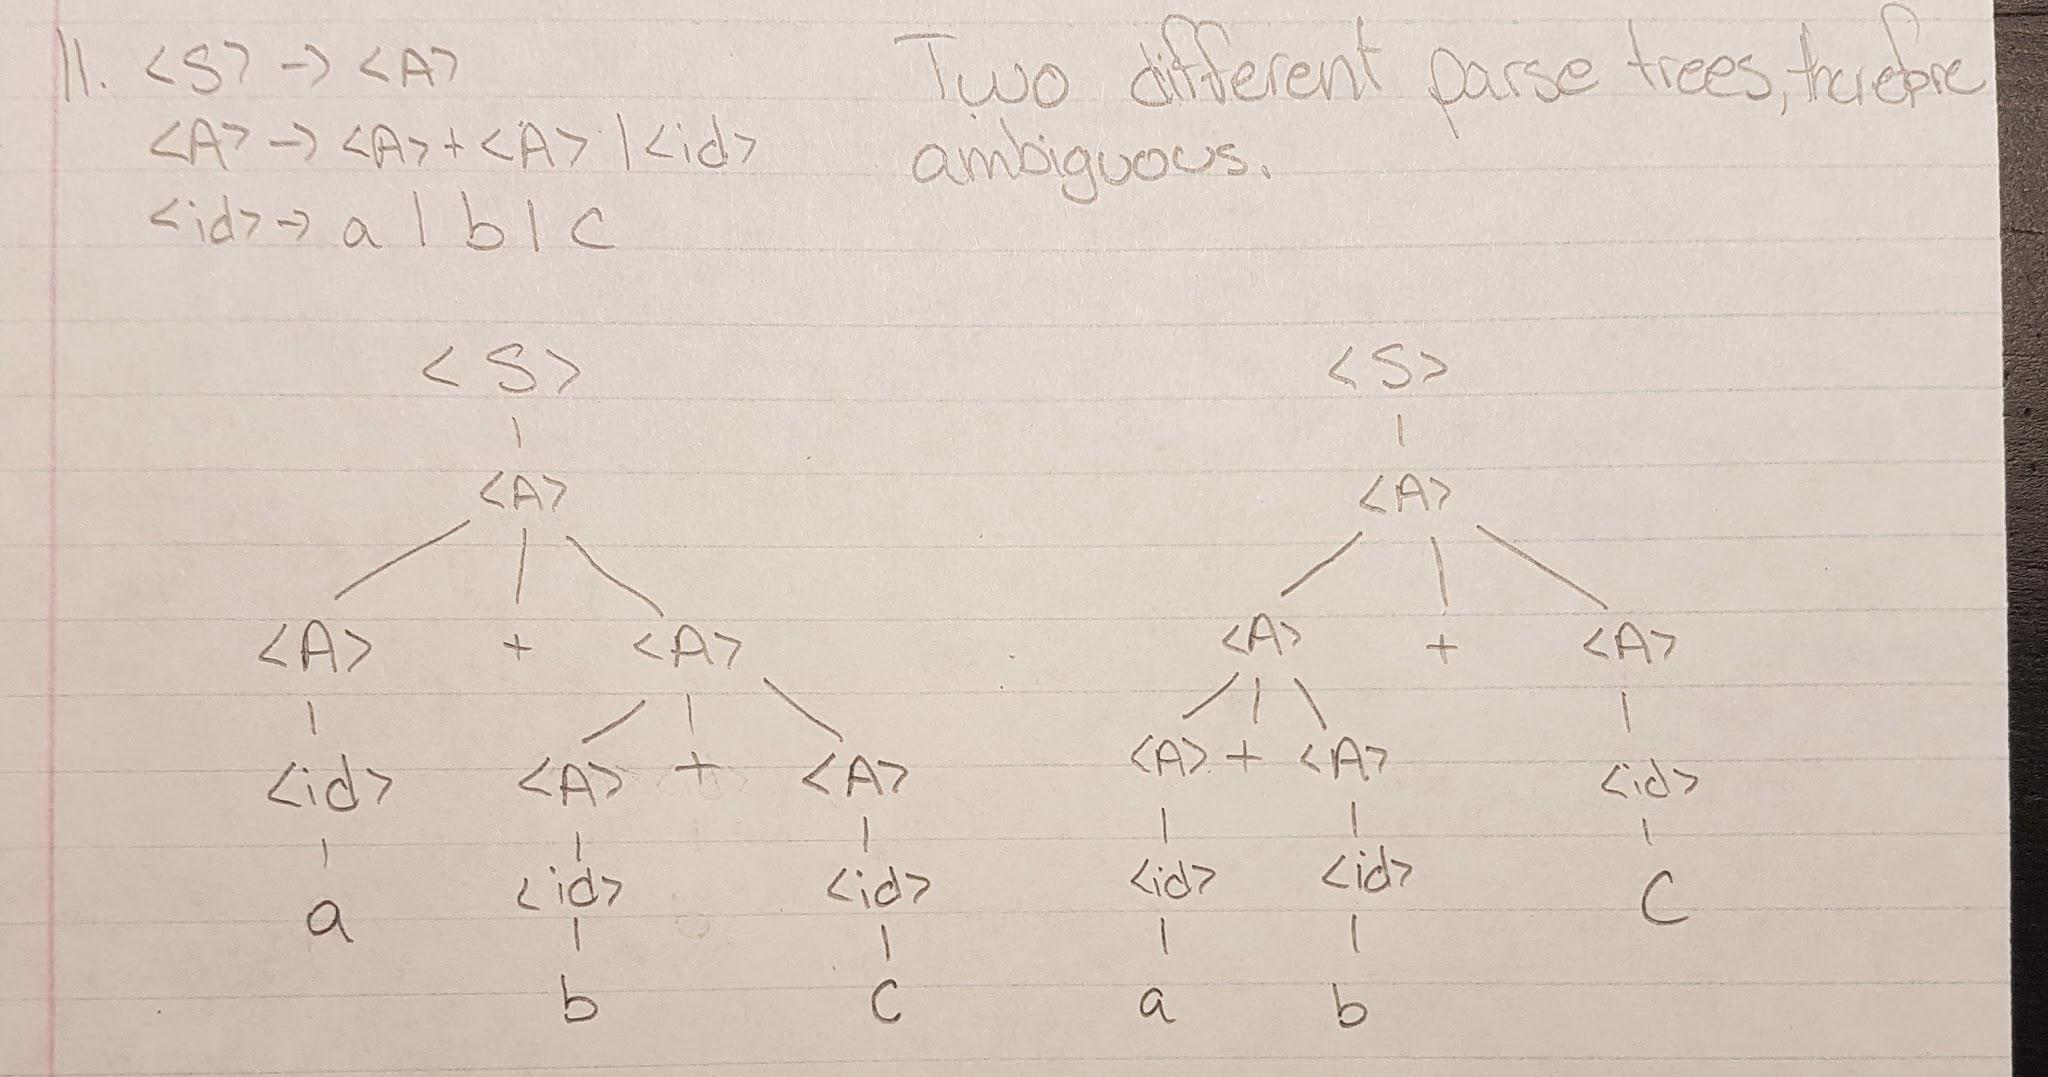 11. <S> -> <A>
<A> -> <A> + <A> | <id>
<id> -> a | b | c
Two different parse trees, therefore
ambiguous.
<S>
<A>
<A> + <A>
<id> <A> + <A>
a <id> <id>
b c
<S>
<A>
<A> + <A>
<A> + <A> <id>
<id> <id> c
a b